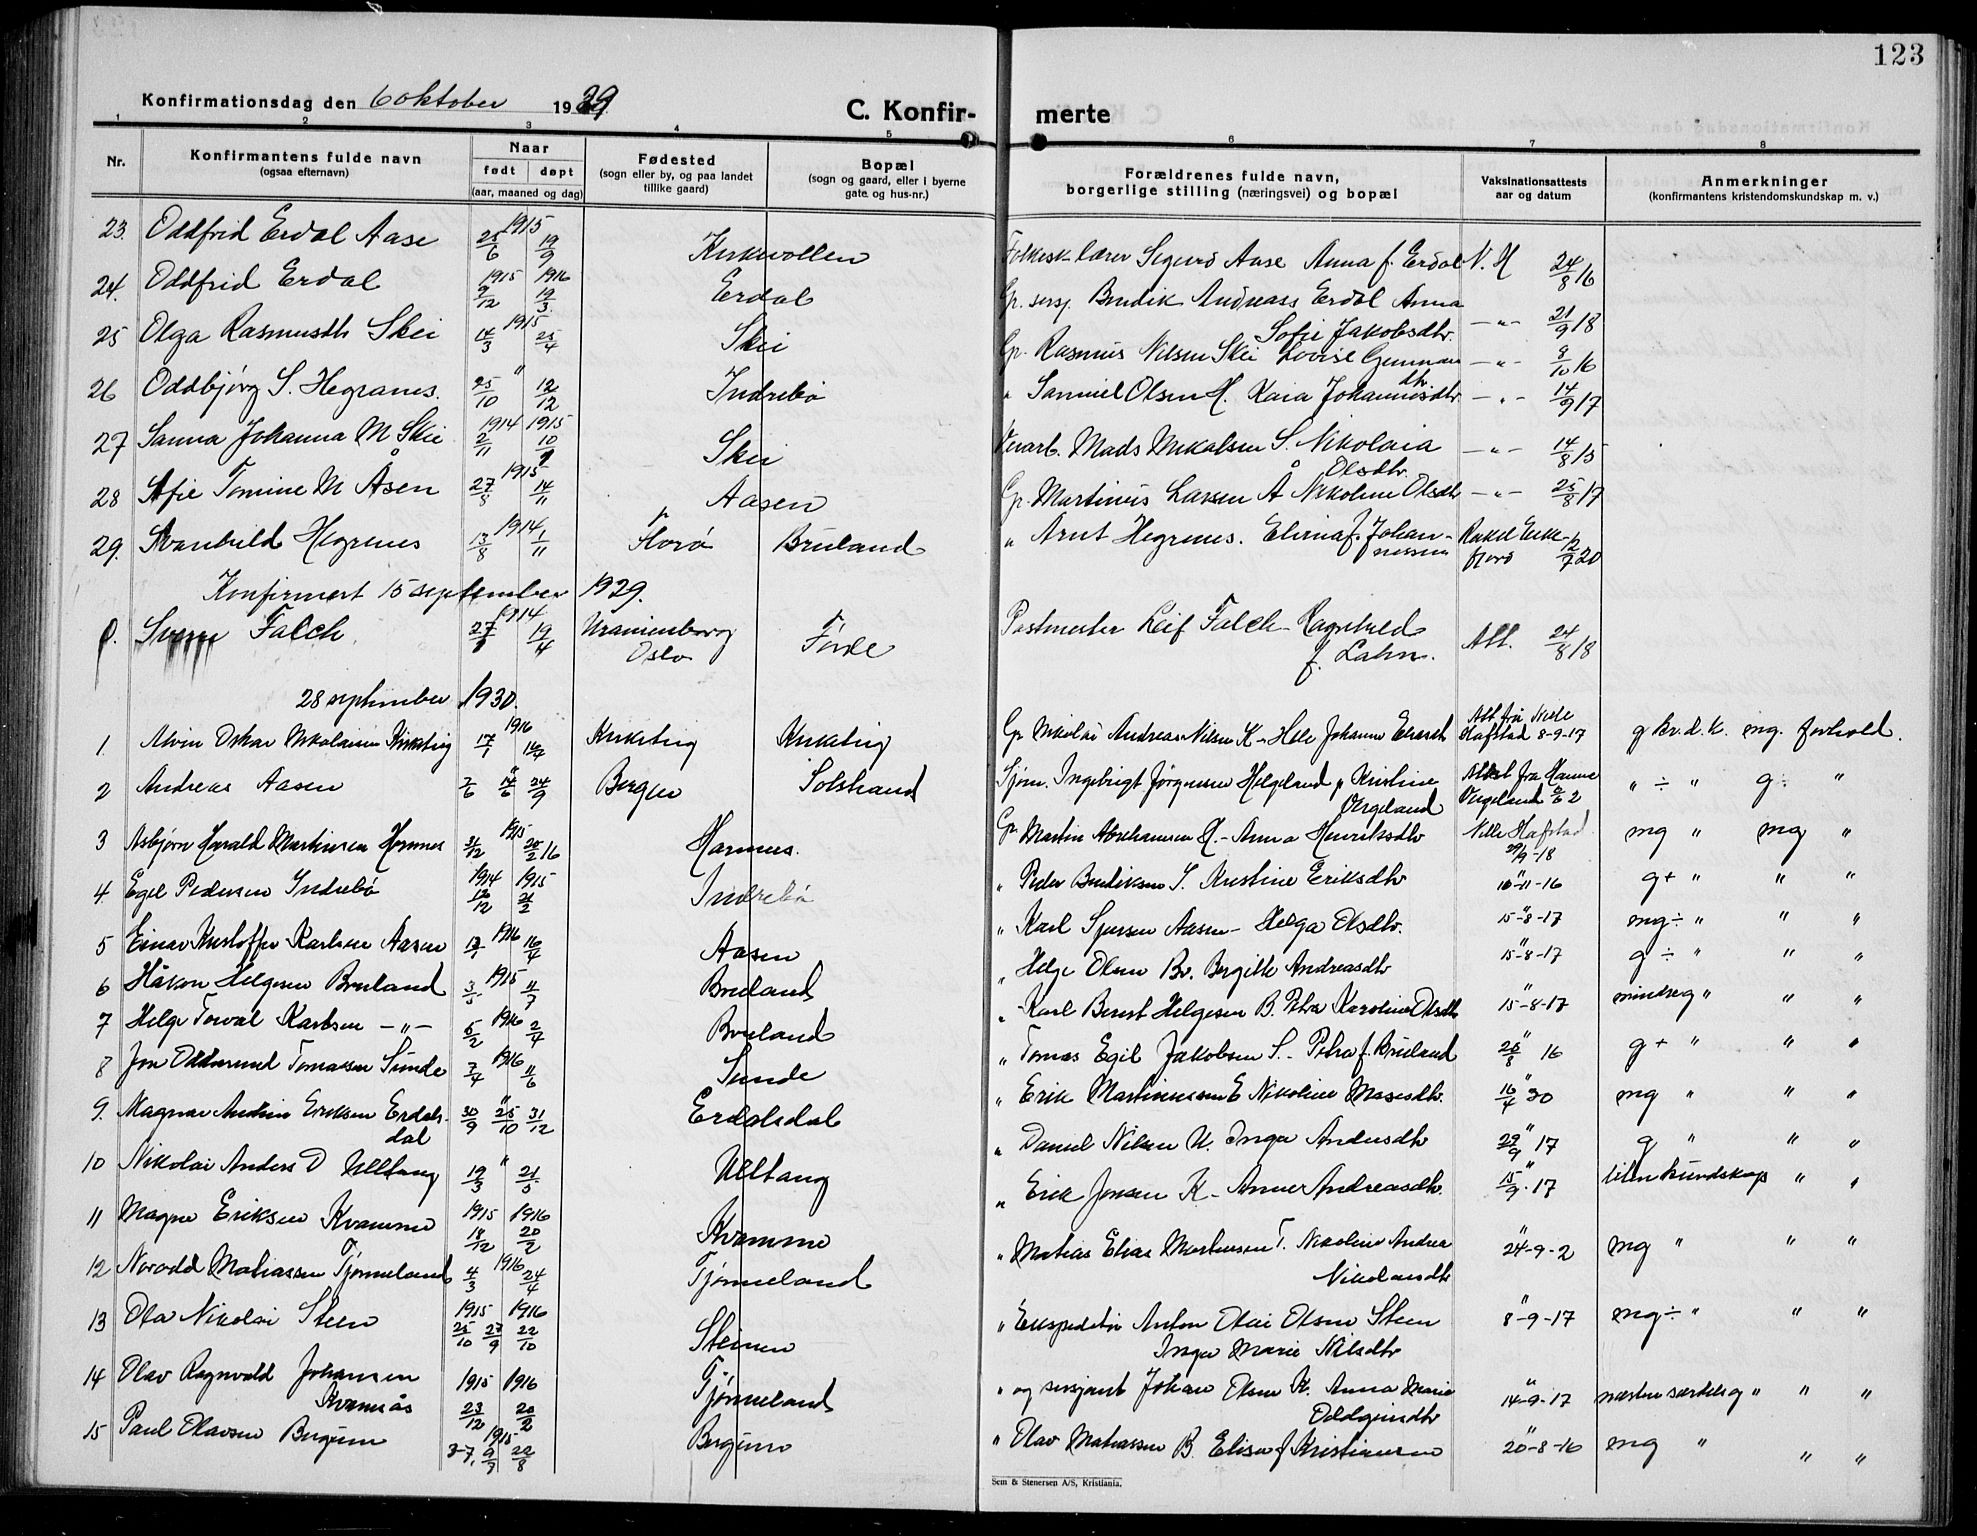 123
Konfirmationsdag den 6 oktober 1929.
C. Konfirmerte
1 2 3 4 5 6 7 8
Nr. Konfirmantens fulde navn (ogsaa efternavn) Naar født døpt (aar, maaned og dag) Fødested (sogn eller by, og paa landet tillike gaard) Bopæl (sogn og gaard, eller i byerne gate og hus-nr.) Forældrenes fulde navn, borgerlige stilling (næringsvei) og bopæl Vaksinationsattests aar og datum Anmerkninger (konfirmantens kristendomskundskap m. v.)
23. Oddfrid Erdal Aase 1915 25/6 19/9 Kirkevollen Folkesk lærer Sigurd Aase Anna f. Erdal N. H 24/8 16
24. Oddfrid Erdal 1915 1916 9/12 19/3 Erdal Gp. sersj. Bendik Andreass Erdal Anna Sofie Jakobsdtr. —"— 21/9 18
25 Olga Rasmusdtr Skei 1915 14/3 25/4 Skei Gp. Rasmus Nilsen Skei Lovise Gunnar dtr. —"— 8/10 16
26 Oddbjørg S. Hegranes. " 25/10 12/12 Indrebö " Samuel Olsen H. Kaia Johannesdtr —"— 14/9 17
27 Sanna Johanna M Skei 1914 1915 2/11 10/1 Skei Mads Mikalsen S. Nikolaia Olsdtr. —"— 14/8 15
28 Sofie Tomine M Åsen 1915 27/8 14/11 Aasen Gp. Martinus Larsen Å Nikoline Olsdtr —"— 25/8 17
29. Svanhild Hegrenes 1914 13/8 1/11 Florö Bruland " Arnt Hegrenes. Elina f. Johannessen Rakel Eikefjord 12/7 20
Konfirmert 15 september 1929.
Sverre Falch. 1914 19/4 Uranienborg Oslo Förde Postmester Leif Falch Ragnhild f. Lahn. Att. 24/8 18
28 september 1930.
1 Alvin Oskar Nikolaisen Kirketeig 1916 17/1 16/4 Kirketeig Kirketeig Gp Nikolai Andreas Nilsen K— Johanne Att fra Nille Hafstad 8-9-17 g kr. d. k. mg. forhold.
2 Andreas Aasen " 24/9 Bergen Solstrand Sjöm. Ingebrigt Jørgensen Helgeland, Kristine Vergeland Attest fra Hanne Vergeland " ÷ " g ÷ "
3 Asbjørn Harald Martinsen Hornnes 1915 31/12 20/2 16 Hornnes. Gp Martin Abrahamsen H.- Anna Henriksdtr Nille Hafstad 29/9-18 mg " mg "
4 Egil Pedersen Indrebö 1914 1915 Indrebö " Peder Bendiksen I. Kristine Eriksdtr " 10-11-16 g+ " " "
5 Einar Kristoffer Karlsen Aasen 1916 16/4 Aasen " Karl Sjursen Aasen- Helga Olsdtr. " 15-8-17 mg÷ " " "
6 Håkon Helgesen Bruland 1915 3/5 11/7 Bruland " Helge Olsen Br. Bergitte Andreasdtr " 15-8-17 g ÷ " " "
7 Helge Torval Karlsen —"— 1916 5/2 2/4 Bruland " Karl Berent Helgesen B. Petra Karoline Olsdtr " 15-8-17 mindre g " " "
8 Jon Oddmund Tomassen Sunde 1916 7/4 11/6 Sunde " Tomas Egil Jakobsen S.- Petra f. Bruland " 26/8 16 g+ " " "
9. Magnar Eriksen Erdalsdal " 30/9 25/10 31/12 Erdalsdal " Erik Martinussen E Nikoline Masesdtr. " 16/4 30 mg " " "
10 Nikolai Anders D Ulltang " 19/3 21/5 Ulltang " Daniel Nilsen U. Inga Andersdtr " 29/9 17 g " " "
11 Magne Eriksen Kvamme 1915 1916 18/12 20/2 Kvamme " Erik Jensen K- Anne Andreasdtr. " 15/9-17 liten kundskap " "
12 Norodd Matiassen Tjönneland 1916 4/3 24/4 Tjönneland " Matias Elias Martinsen T. Nikoline Andrea Nikolaisdtr " 24-9-2 mg " " "
13 Ola Nikolai Steen 1915 1916 25/10 27/9 22/10 Steinen " Ekspeditör Anton Olai Olsen Steen Inga Marie Nilsdtr " 8-9-17 mg÷ " " "
14 Olav Ragnvald Johansen Kvamsås 1915 1916 23/12 20/2 Tjönneland " og sersjant Johan Olsen K. Anna Marie Oddgeirsdtr " 14-9-17 næsten særdeles g " " "
15 Paul Olavsen Bergum 1915 22/8 Bergum " Olav Matiassen B. Elise f. Kristiansen " 20-8-16 mg " " "
Sem & Stenersen A/S, Kristiania.